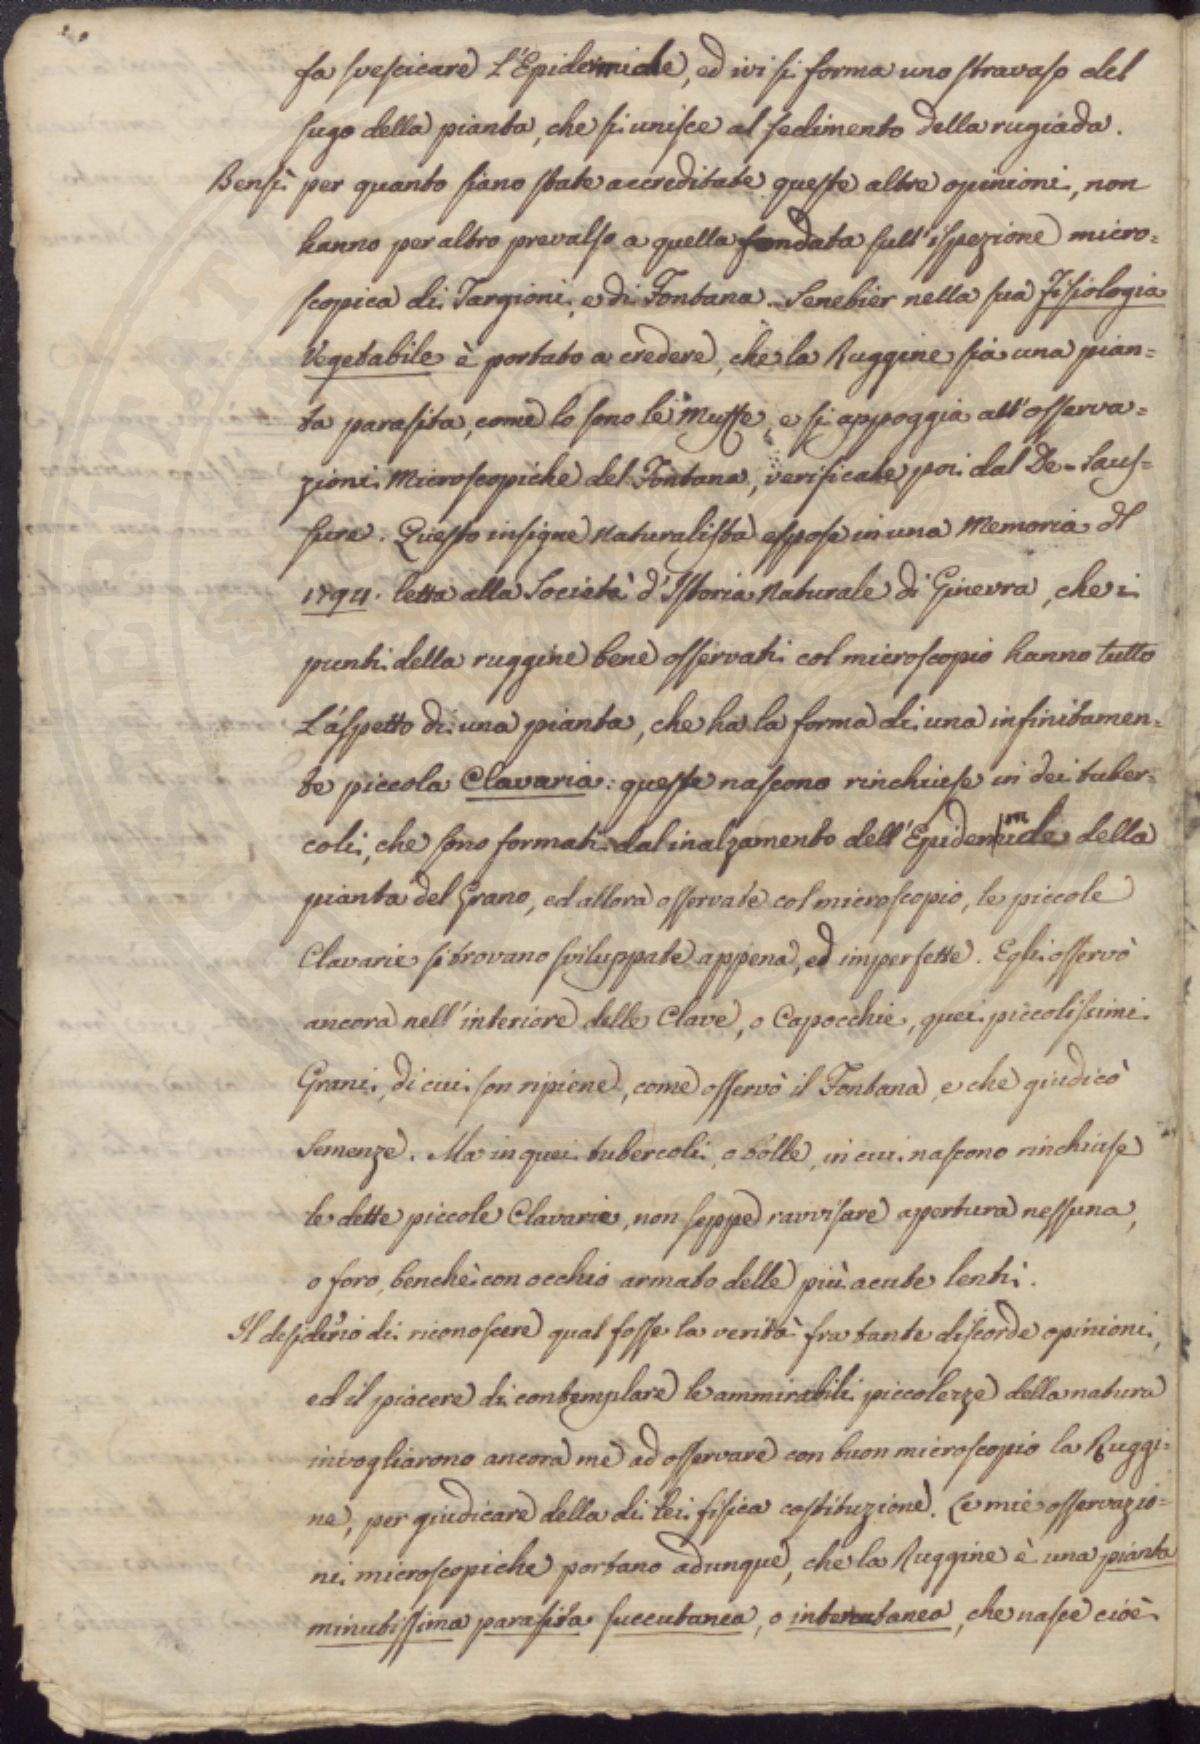 fa svescicare L'Epidermide, ed ivi si forma uno stravaso del
sugo della pianta, che si unisce al sedimento della rugiada.
Bensì per quanto siano state accreditate queste altre opinioni, non
hanno per altro prevalso a quella fondata sull'ispezione micro=
scopica di Targioni, e di Fontana. Senebier nella sua Fisiologia
Vegetabile è portato a credere, che la Ruggine sia una pian=
ta parasita, come lo sono le Muffe, e si appoggia all'osserva=
zioni Microscopiche del Fontana, verificate poi dal De-Saus=
sure. Questo insigne Naturalista espose in una Memoria del
1794. letta alla Società d'Istoria Naturale di Ginevra, che i
punti della ruggine bene osservati col microscopio hanno tutto
L'aspetto di una pianta, che ha la forma di una infinitamen=
te piccola Clavaria: queste nascono rinchiuse in dei tuber=
coli, che sono formati dal inalzamento dell'Epidermide della
pianta del Grano, ed allora osservate col microscopio, le piccole
Clavarie si trovano sviluppate appena, ed imperfette. Egli osservò
ancora nell'interiore delle Clave, o Capocchie, quei piccolissimi
Grani, di cui son ripiene, come osservò il Fontana, e che giudicò
Semenze. Ma in quei tubercoli, o bolle, in cui nascono rinchiuse
le dette piccole Clavarie, non seppe ravvisare apertura nessuna,
o foro, benchè con occhio armato delle più acute lenti.
Il desiderio di riconoscere qual fosse la verità fra tante discorde opinioni,
ed il piacere di contemplare le ammirabili piccolezze della natura
invogliarono ancora me ad osservare con buon microscopio la Ruggi=
ne, per giudicare della di lei fisica costituzione. Le mie osservazio=
ni microscopiche portano adunque, che la Ruggine è una pianta
minutissima parasita succutanea, o intercutanea, che nasce cioè